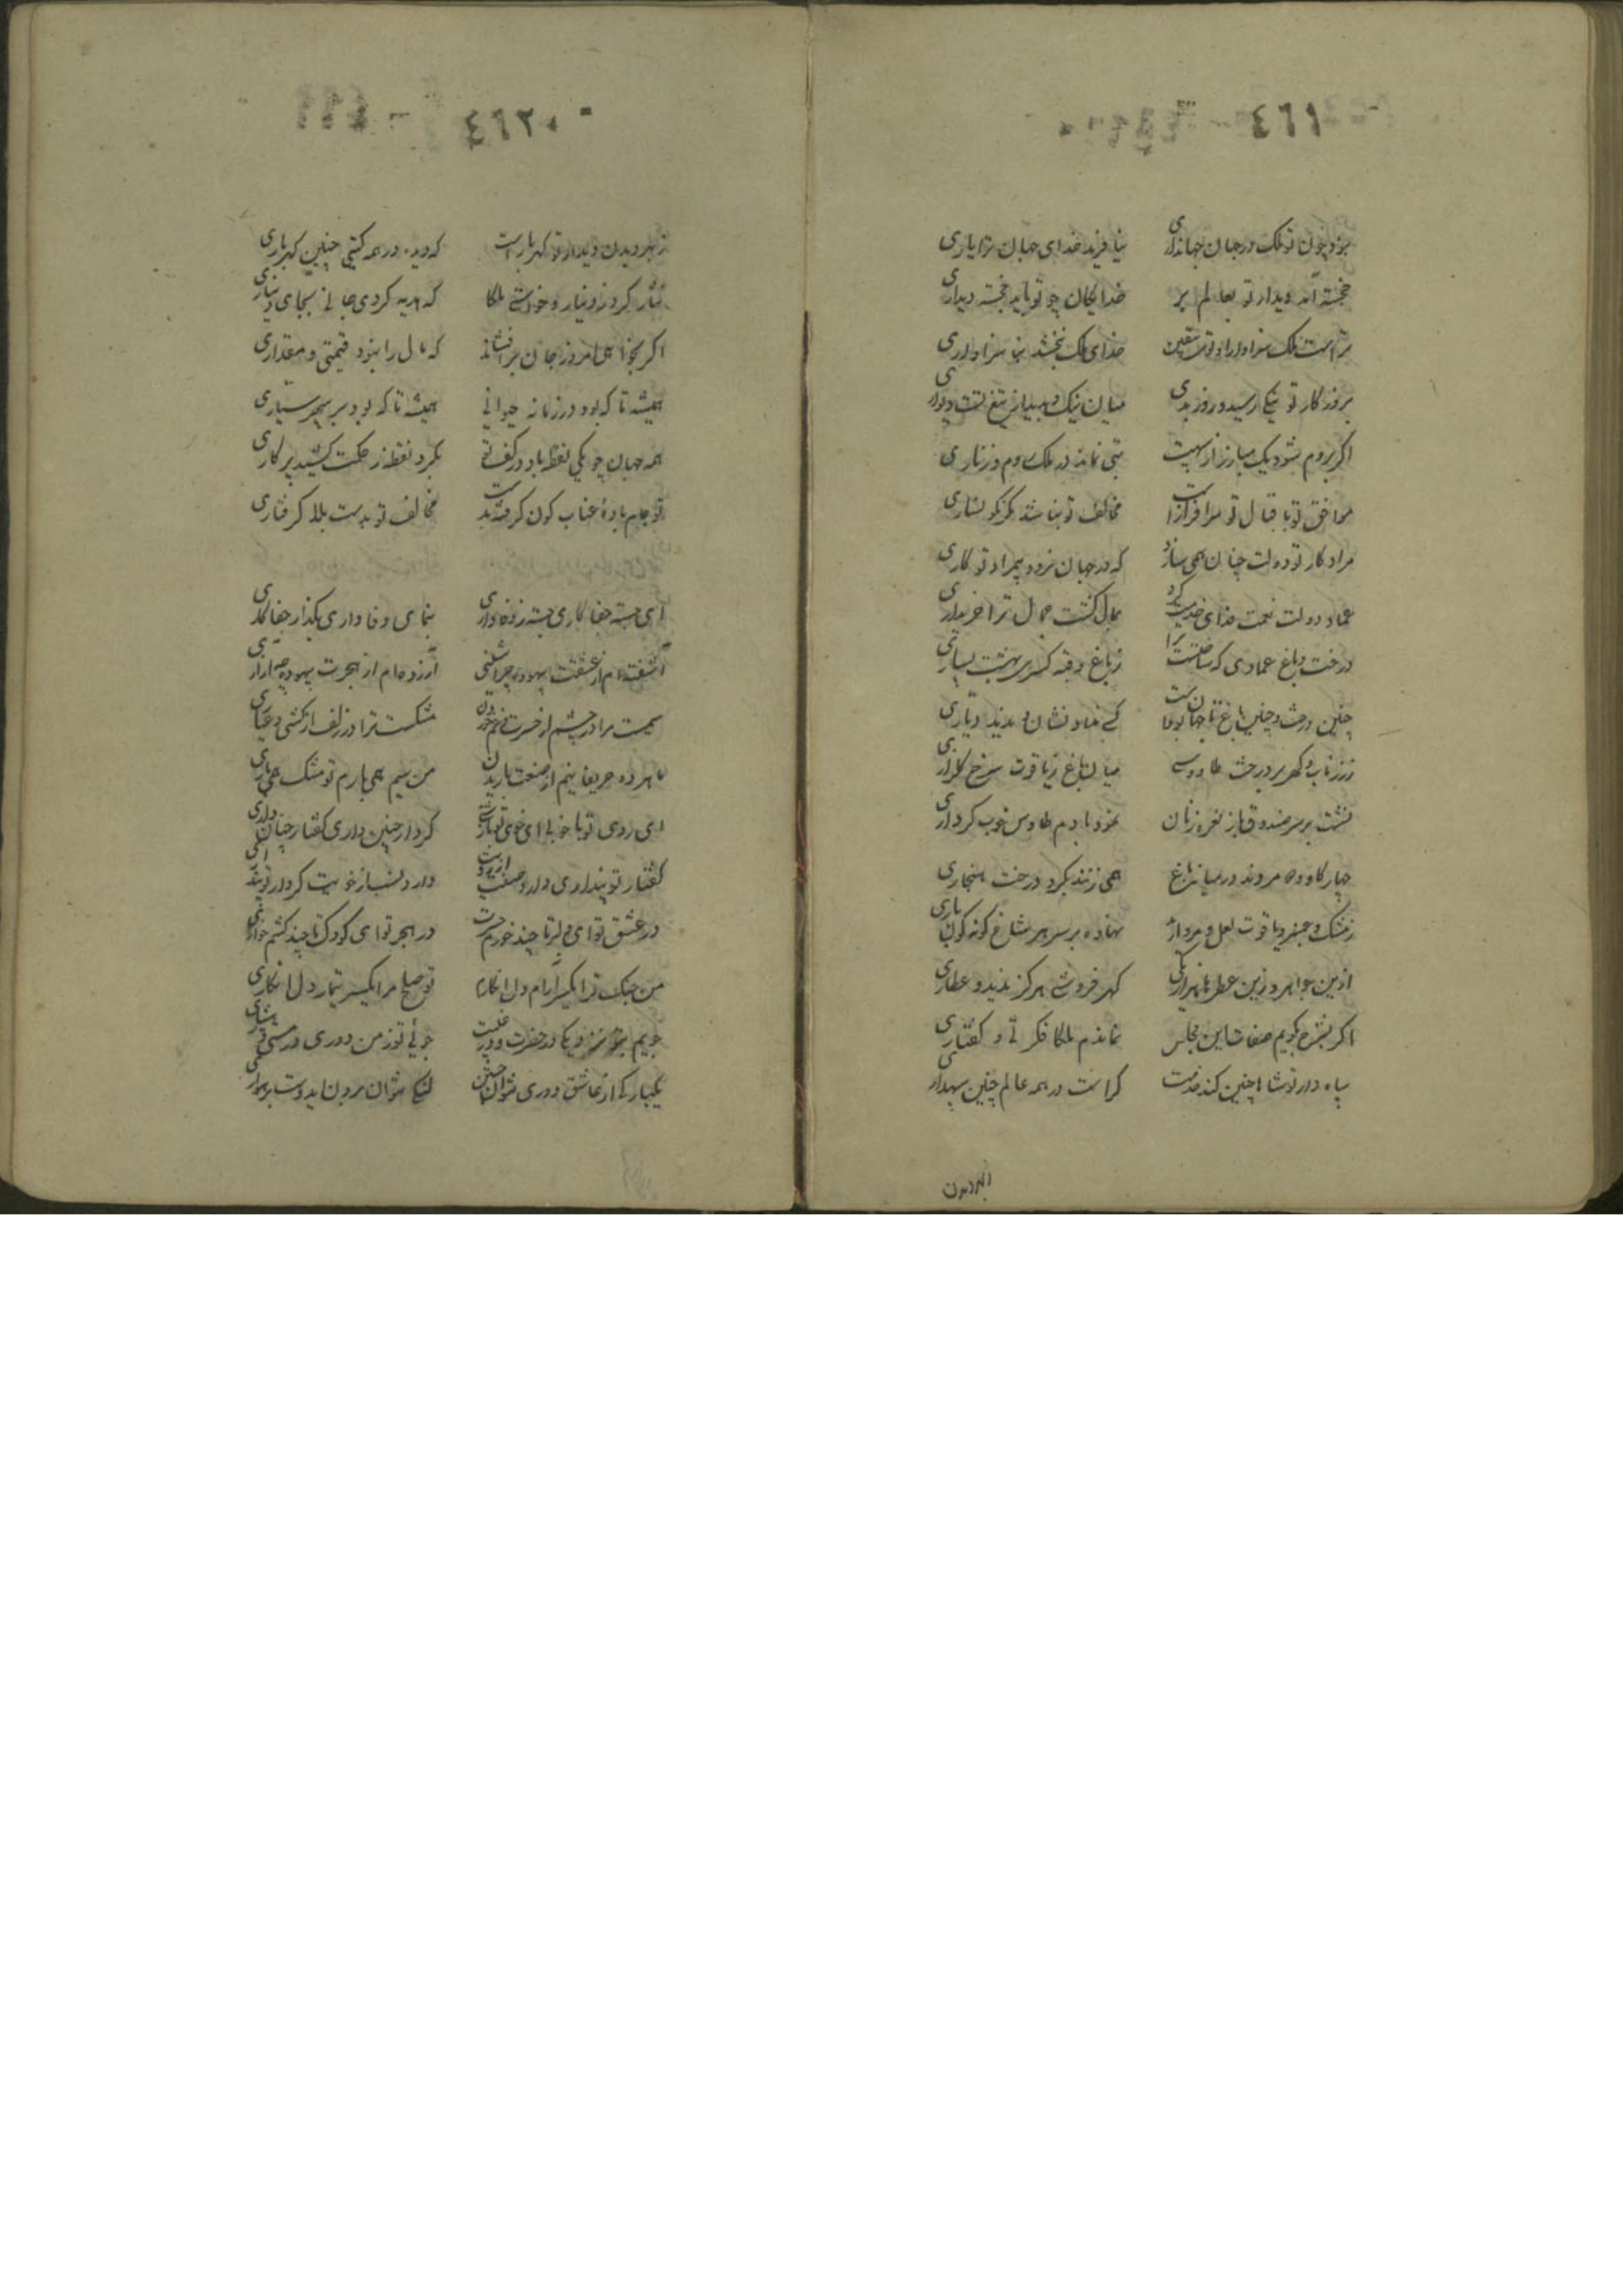 ٤٦١
بود چون تو ملک در جهان جهانداری نیافرید خدای جهان ترا یاری
خجسته آمد دیدار تو بعالم بر خدایگان چو تو باید خجسته دیداری
تراست ملک سزاوار و تو یقین خدای ملک نبخشد بنا سزاواری
بروزگار تو نیکی رسید و روز بدی میان نیک و بد میان تیغ تست دیواری
اگر بروم شود یک مبارز از سپهت بتی نماند در ملک روم و زناری
موافق تو باقبال تو سرافرازست مخالف تو نباشد مگر نگونساری
مراد کار تو دولت چنان همی سازد که در جهان نرود بیمراد تو کاری
عماد دولت نعمت فدای خدمت کرد بمال گشت جمال ترا خریداری
درخت و باغ عمادی که ساختست ترا ز باغ و قبه کسری بهست بسیاری
چنین درخت و چنین باغ تا جهان بودست کسی نداد نشان و ندید دیاری
ز زر ناب و گهر بر درخت طاووسی میان باغ ز یاقوت سرخ گلزاری
نشست بر سر صندوق باز نعره زنان نمود با دم طاوس خوب کرداری
چهار گاو وه مروند در میانه باغ همی زنند بگرد درخت هنجاری
ز مشک و عنبر و یاقوت لعل و مروارید نهاده بر سر هر شاخ گونه گون باری
ازین جواهر و زین عطرها گهر فروشی هرگز ندید و عطاری
اگر بشرح بگویم صفات این مجلس نماندم ملکا فکرتی و گفتاری
سپاه دار تو شاها چنین کند خدمت کراست در همه عالم چنین سپهداری
ز بهر دیدن
٤٦٢
ز بهر دیدن دیدار تو گهر بارست که دید در همه گیتی چنین گهرباری
نثار کرد ز دینار و خواستی ملکا که هدیه کردی جانی بجای دیناری
اگر بخواهی امروز جان برافشاند که مال را نبود قیمتی و مقداری
همیشه تا که بود در زمانه حیوانی همیشه تا که بود بر سپهر سیاری
همه جهان چو یکی نقطه باد در کف تو بگرد نقطه ز حکمت کشیده پرگاری
تو جام باده عناب گون گرفته بدست مخالف تو بدست بلا گرفتاری
ای جسته جفا کاری جسته ز وفاداری بنمای وفاداری بگذار جفاکاری
آشفته‌ام از عشقت بیهوده چه آشوبی آزرده‌ام از هجرت بیهوده چه آزاری
سیمست مرا در چشم از حسرت و غم خوردن مشکست ترا در زلف از کشی و عیاری
ما هر دو حریفانیم از صنعت باریدن من سیم همی بارم تو مشک همی باری
ای روی تو با خوبی ای خوی تو با زشتی کردار چنین داری گفتار چنان داری
گفتار تو پنداری دارد صفت از رویت دارد نسب از خویت کردار تو پنداری
در عشق تو ای دلبر تا چند خورم حسرت در هجر تو ای کودک تا چند کشم خواری
من جنگ ترا یکسر آرام دل انگارم تو صلح مرا یکسر تیمار دل انگاری
جویم بتو نزدیکی در حضرت و در غیبت جوئی تو ز من دوری در مستی و هشیاری
یکبارگی از عاشق دوری نتوان جستن لیکن نتوان بودن ای دوست بدشواری